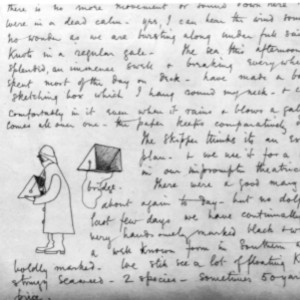 there is no more movement or sound down here
were in a dead calm - yes, I can hear the wind
no wonder as we are bursting along under full sail
Knots in a regular gale - The sea this afternoon
splendid, an immense swell & breaking everywhere
spent most of the day on deck - have made a
sketching box which I hang round my neck - &
comfortably in it even when it rains & blows a gale
comes all over one - the paper keeps comparatively
The Skipper thinks it an
plan - & we use it for a
in our impromptu theatric
bridge.
There were a good many
about again to-day - but no dol
last few days we have continually
very handsomely marked black & w
a well known form in Southern
boldly marked - We still see a lot of floating
stringy seaweed - 2 species - sometimes 50 yards